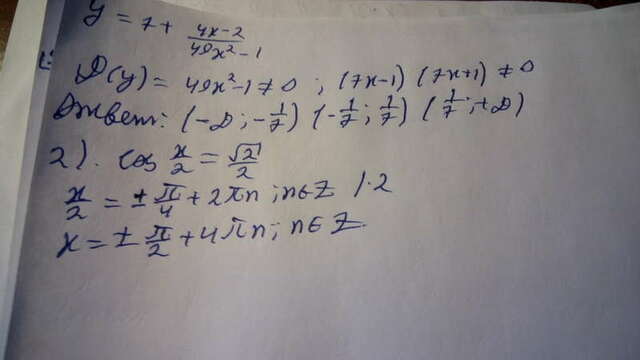 y = 7 + \frac{4x-2}{49x²-1}
D(y) = 49x²-1 ≠ 0 ; (7x-1) (7x+1) ≠ 0
Ответ: (-∞ ; -\frac{1}{7}) (-\frac{1}{7} ; \frac{1}{7}) (\frac{1}{7} ; +∞)
2). cos \frac{x}{2} = \frac{√2}{2}
\frac{x}{2} = ± \frac{π}{4} + 2πn ; n∈Z /·2
x = ± \frac{π}{2} + 4πn ; n∈Z.